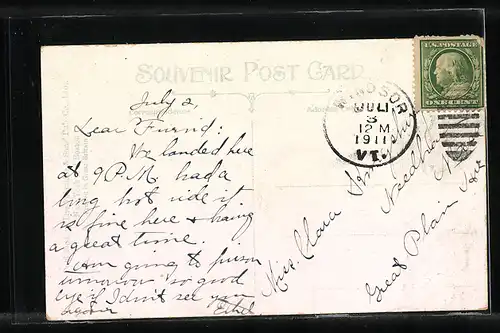 SOUVENIR POST CARD
U.S. POSTAGE
ONE CENT
WINDSOR
JUL
3
12 M
1911
VT.
July 2
Dear Friend:
We landed here
at 9 P.M. had a
long hot ride it
is fine here & having
a great time.
am going to prison
tomorrow so good
bye if I don't see you
again Ethel
Miss. Clara
Needham
Great Plain Ave